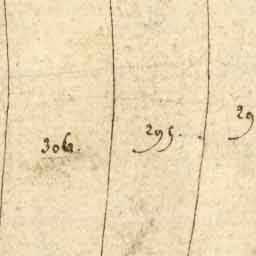 306.
295.
29